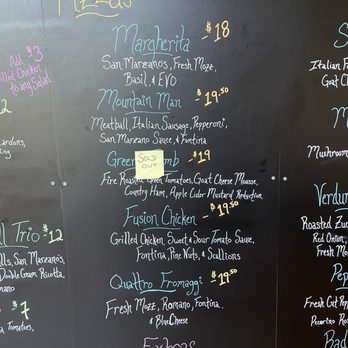 Pizzas
Margherita - $18
San Marzanos, Fresh Mozz,
Basil, & EVO
Mountain Man - $19.50
Meatball, Italian Sausage, Pepperoni,
San Marzano Sauce, & Fontina
Green SOLD OUT mb - $19
Fire Roasted Green Tomatoes, Goat Cheese Mousse,
Country Ham, Apple Cider Mustard Reduction
Fusion Chicken - $19.50
Grilled Chicken, Sweet & Sour Tomato Sauce,
Fontina, Pine Nuts, & Scallions
Quattro Fromaggi - $19.50
Fresh Mozz, Romano, Fontina,
& Blue Cheese
Extras
Add $3
Chicken
to any Salad
2
ardons,
ring
l Trio - $12
lls, San Marzano's,
Double Cream Ricotta,
omano
- $7
Tomatoes,
S
Italian F
Goat Ch
M
Mushroom
Verdur
Roasted Zucc
Red Onion,
Fresh Mo
Pep
Fresh Cut Pepp
Pecorino Ro
Bad